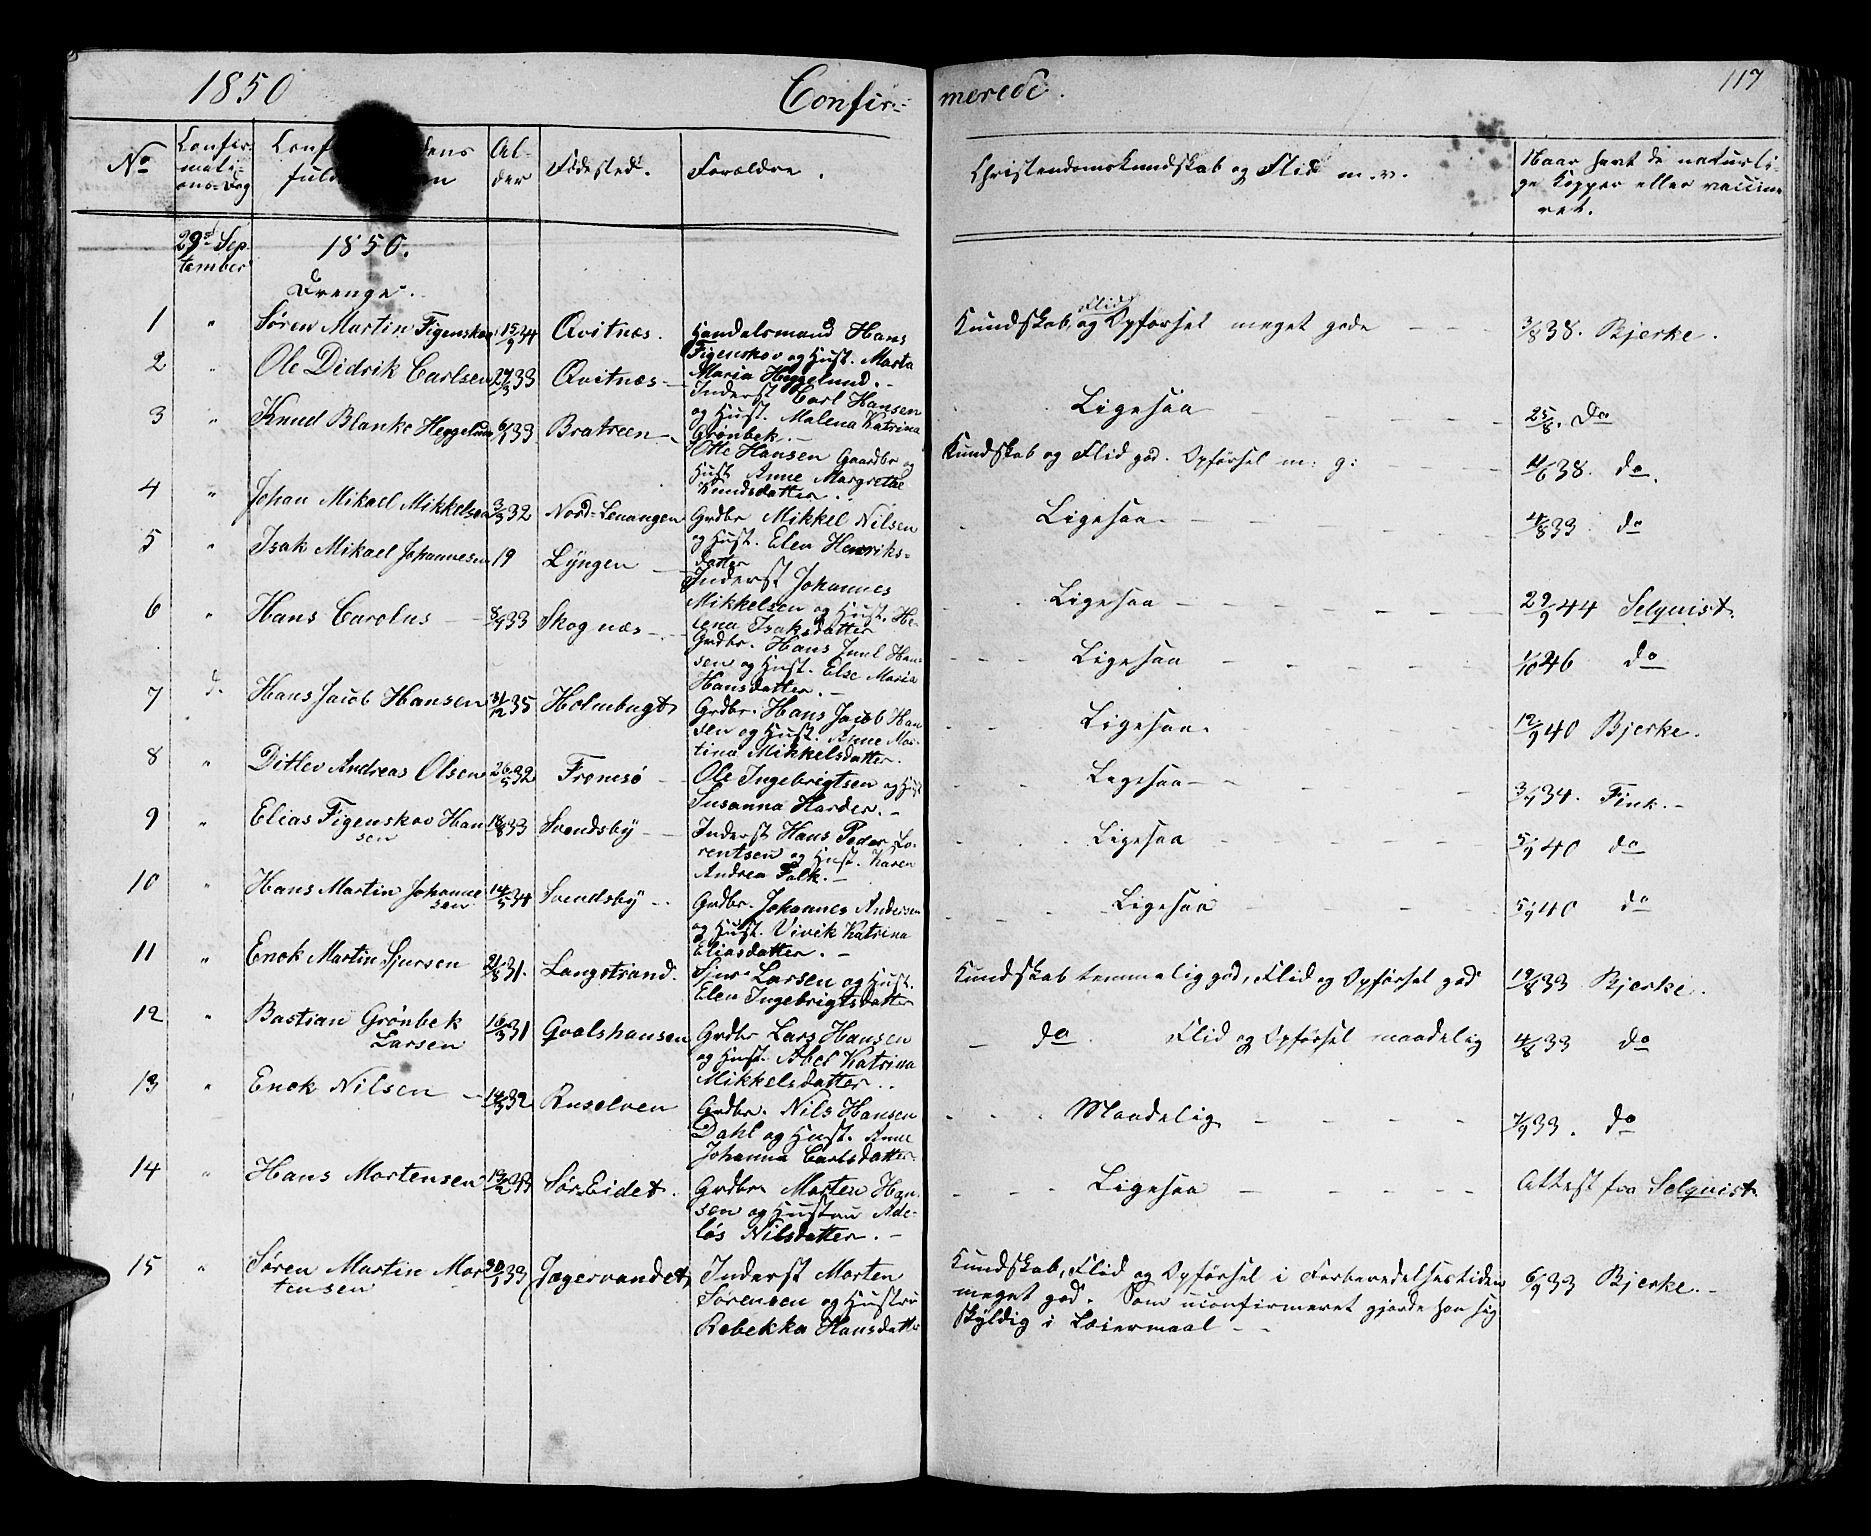 1850
Confir-
merede.
117
No
Confir
mati-
ons-Dag
Al-
der
Fødested.
Forældre.
Christendomskundskab og Flid m. v.
Naar havt de naturli-
ge Kopper eller vaccine
ret.
29de Sep
tember
1850.
Drenge.
1 " Søren Martin Figenskov 15/9 34 Qvitnæs. Handelsmand Hans
Figenskov og Hust. Marta
Maria Heggelund.
Kundskab, Flid og Opførsel meget gode 3/8 38. Bjerke.
2 " Ole Didrik Carlsen 33 Qvitnæs Inderst Carl Hansen
og Hust. Malena Katrina
Grønbek.
Ligesaa 25/8. do
3 " Knud Blanke Heggelund 6/1 33 Bratreen Otte Hansen Gaardbr og
Hust Anne Margrethe
Knudsdatter.
Kundskab og Flid god. Opførsel m: g: 4/6 38. do.
4 " Johan Mikael Mikkelsen 3/3 32 Nord-Lenangen Grdbr Mikkel Nilsen
og Hust. Elen Henriks-
datter
Ligesaa. 4/8 33 do
5 " Isak Mikael Johannesen 19 Lyngen Inderst Johannes
Mikkelsen og Hust. He-
lena Isaksdatter
Ligesaa 29/9 44 Selquist.
6 " Hans Carolus 8/9 33 Skognæs Grdbr. Hans Juul Han-
sen og Hust. Else Maria
Hansdatter.
Ligesaa 1/10 46 do
7 d. Hans Jacob Hansen 31/12 35 Holmbugt Grdbr. Hans Jacob Han
sen og Hust. Anne Mar-
tina Mikkelsdatter.
Ligesaa. 12/9 40 Bjerke.
8 " Ditlev Andreas Olsen 26/5 32 Tromsø Ole Ingebrigtsen og Hust
Susanna Harder.
Ligesaa 34. Fink.
9 " Elias Figenskov Han
sen 18/8 33 Svendsby Inderst Hans Peder Lo-
rentsen og Hust. Karen
Andrea Falk.
Ligesaa 5/9 40 do
10 " Hans Martin Johanne
sen 14/5 34 Svendsby Grdbr. Johannes Andersen
og Hust. Vivik Katrina
Eliasdatter.
Ligesaa 5/9 40 do
11 " Enok Martin Sjursen 21/8 31. Langstrand. Sjur Larsen og Hust.
Elen Ingebrigtsdatter
Kundskab temmelig god, Flid og Opførsel god 19/8 33 Bjerke.
12 " Bastian Grønbek
Larsen 16/3 31 Gvalshausen Grdbr Lars Hansen
og Hust. Abel Katrina
Mikkelsdatter.
do. Flid og Opførsel maadelig 4/8 33 do
13 " Enok Nilsen 14/3 32 Russelven Grdbr. Nils Hansen
Dahl og Hust. Anne
Johanna Carlsdatter
Maadelig 7/9 33. do
14 " Hans Mortensen 33 Sør Eidet. Grdbr Morten Han-
sen og Hustru Ade-
løs Nilsdatter.
Ligesaa Attest fra Selquist.
15 " Søren Martin Mor
tensen 33 Jægervandet Inderst Morten
Sørensen og Hustru
Rebekka Hansdatter
Kundskab, Flid og Opførsel i Forberedelsestiden
meget god. Som uconfirmeret gjorde han sig
skyldig i Leiermaal
6/9 33 Bjerke.